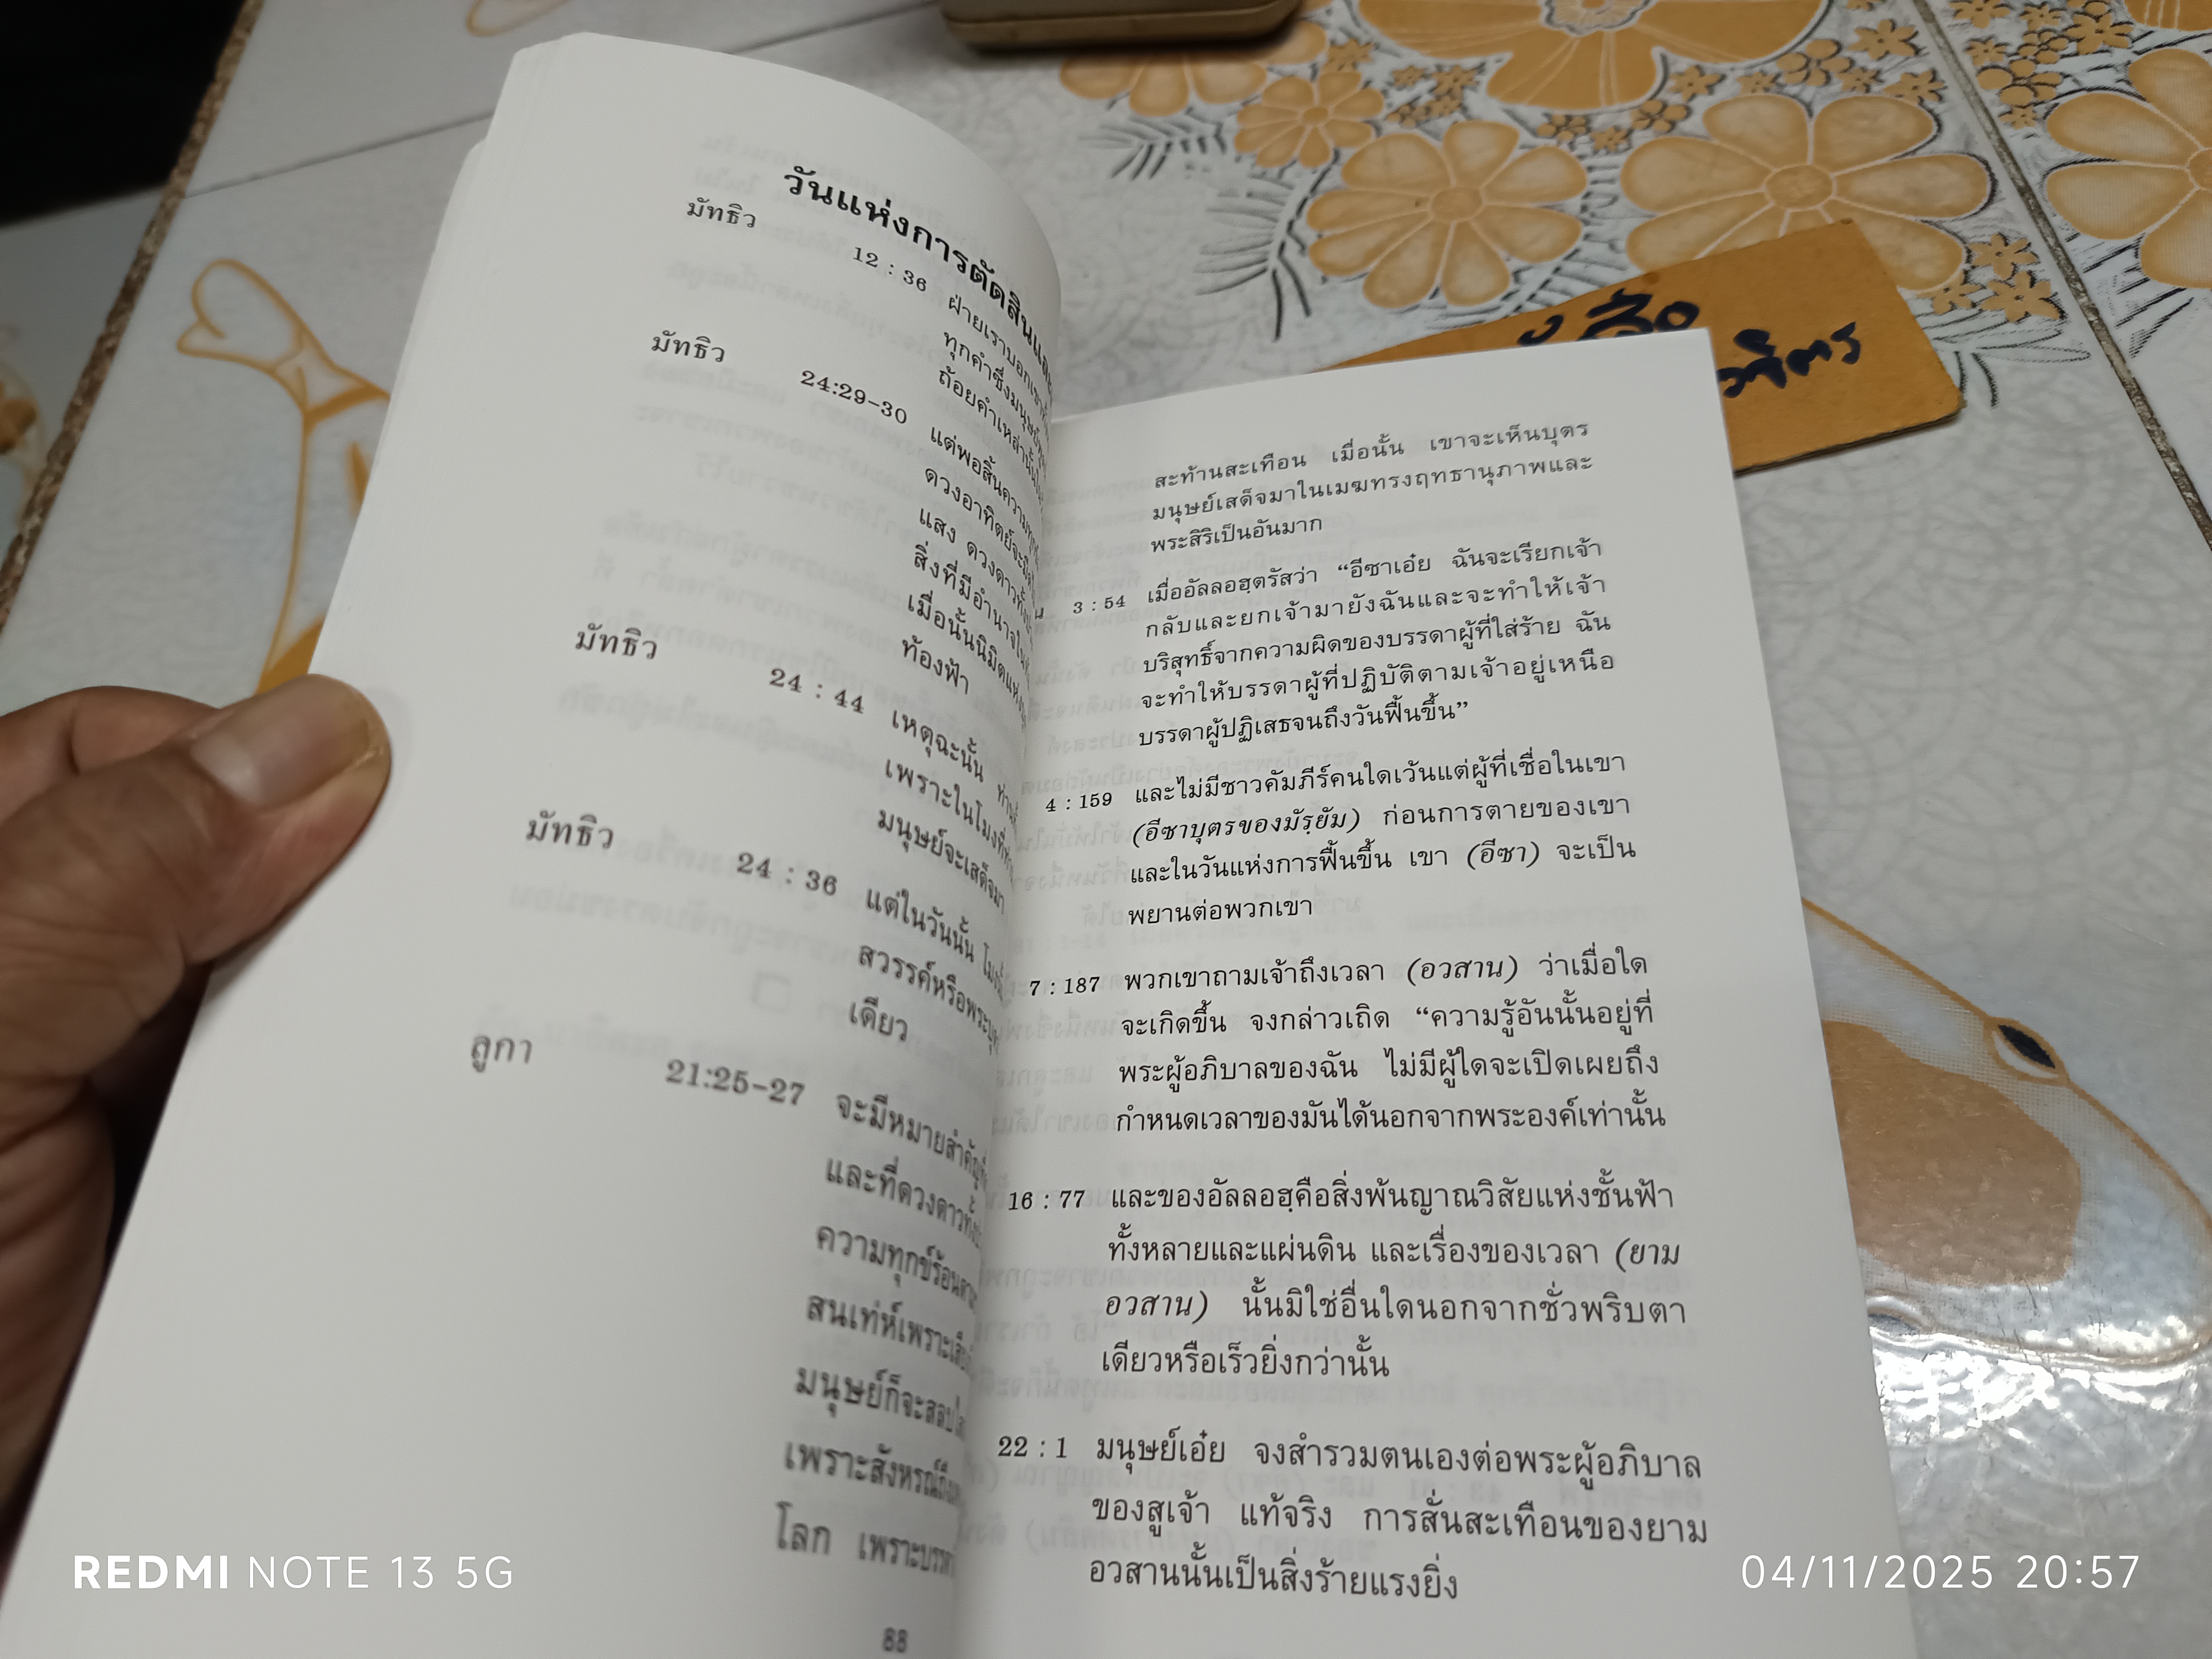 วันแห่งการตัดสินและ
มัทธิว
12 : 36 ฝ่ายเราบอกเขาทั้ง
ทุกคำซึ่งมนุษย์พูด
ถ้อยคำเหล่านั้น
มัทธิว
24:29-30 แต่พอสิ้นความทุกข์
ดวงอาทิตย์จะมืด
แสง ดวงดาวทั้ง
สิ่งที่มีอำนาจใน
เมื่อนั้นนิมิตแห่ง
ท้องฟ้า
มัทธิว
24 : 44 เหตุฉะนั้น
เพราะในโมงที่ท่าน
มนุษย์จะเสด็จมา
มัทธิว
24 : 36 แต่ในวันนั้น โมงนั้น
สวรรค์หรือพระบุตร
เดียว
ลูกา
21:25-27 จะมีหมายสำคัญที่
และที่ดวงดาวทั้ง
ความทุกข์ร้อนตาม
สนเท่ห์เพราะเสียง
มนุษย์ก็จะสลบไสล
เพราะสังหรณ์ถึง
โลก เพราะบรรดา
88
สะท้านสะเทือน เมื่อนั้น เขาจะเห็นบุตร
มนุษย์เสด็จมาในเมฆทรงฤทธานุภาพและ
พระสิริเป็นอันมาก
3 : 54 เมื่ออัลลอฮฺตรัสว่า “อีซาเอ๋ย ฉันจะเรียกเจ้า
กลับและยกเจ้ามายังฉันและจะทำให้เจ้า
บริสุทธิ์จากความผิดของบรรดาผู้ที่ใส่ร้าย ฉัน
จะทำให้บรรดาผู้ที่ปฏิบัติตามเจ้าอยู่เหนือ
บรรดาผู้ปฏิเสธจนถึงวันฟื้นขึ้น”
4 : 159 และไม่มีชาวคัมภีร์คนใดเว้นแต่ผู้ที่เชื่อในเขา
(อีซาบุตรของมัรฺยัม) ก่อนการตายของเขา
และในวันแห่งการฟื้นขึ้น เขา (อีซา) จะเป็น
พยานต่อพวกเขา
7 : 187 พวกเขาถามเจ้าถึงเวลา (อวสาน) ว่าเมื่อใด
จะเกิดขึ้น จงกล่าวเถิด “ความรู้อันนั้นอยู่ที่
พระผู้อภิบาลของฉัน ไม่มีผู้ใดจะเปิดเผยถึง
กำหนดเวลาของมันได้นอกจากพระองค์เท่านั้น
16 : 77 และของอัลลอฮฺคือสิ่งพ้นญาณวิสัยแห่งชั้นฟ้า
ทั้งหลายและแผ่นดิน และเรื่องของเวลา (ยาม
อวสาน) นั้นมิใช่อื่นใดนอกจากชั่วพริบตา
เดียวหรือเร็วยิ่งกว่านั้น
22 : 1 มนุษย์เอ๋ย จงสำรวมตนเองต่อพระผู้อภิบาล
ของสูเจ้า แท้จริง การสั่นสะเทือนของยาม
อวสานนั้นเป็นสิ่งร้ายแรงยิ่ง
REDMI NOTE 13 5G
04/11/2025 20:57